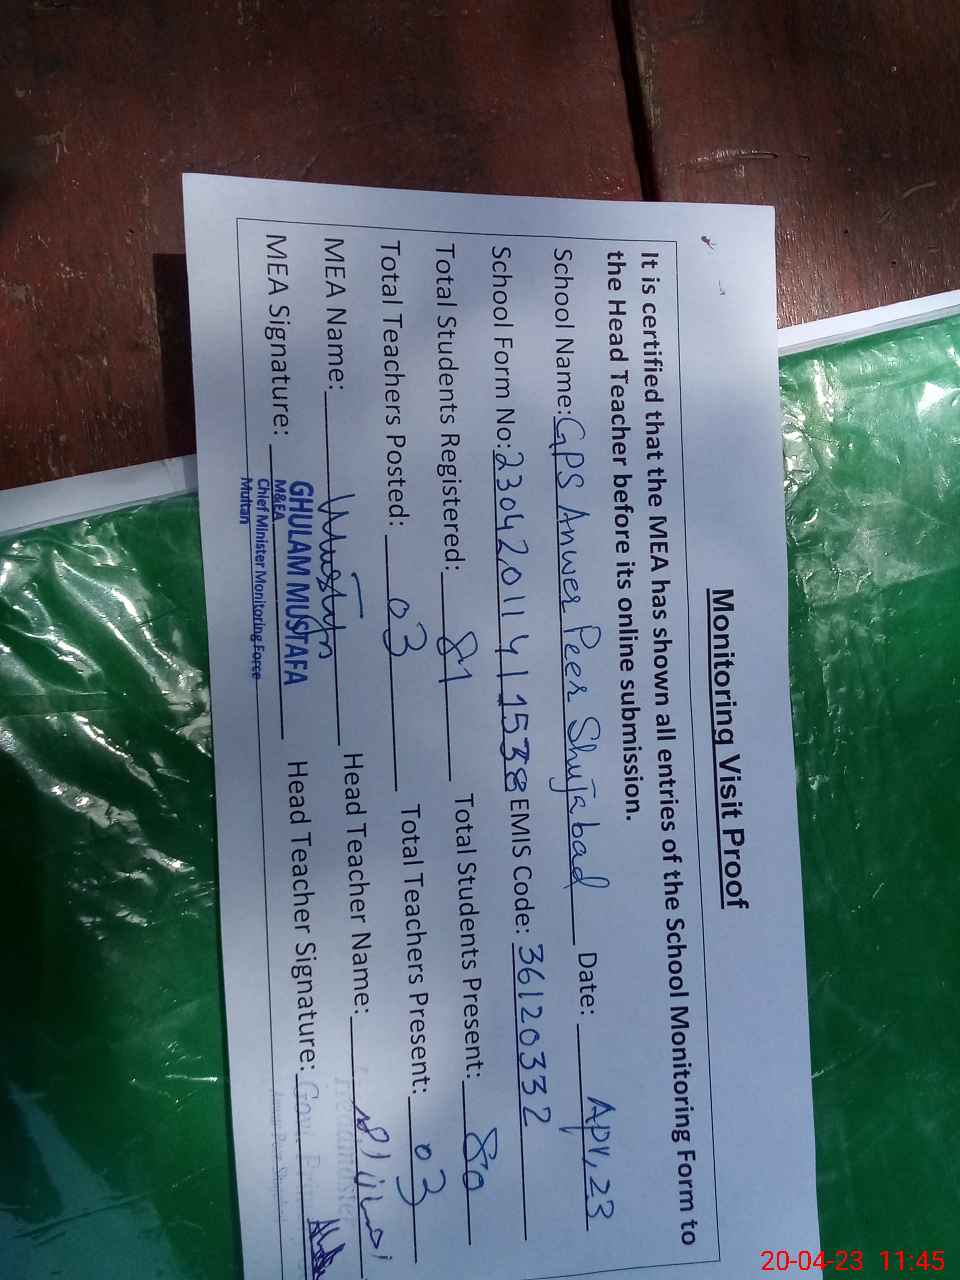 Monitoring Visit Proof
It is certified that the MEA has shown all entries of the School Monitoring Form to
the Head Teacher before its online submission.
School Name: GPS Anwer Peer Shujabad Date: Apr, 23
School Form No: 2304201141538 EMIS Code: 36120332
Total Students Registered: 81 Total Students Present: 80
Total Teachers Posted: 03 Total Teachers Present: 03
MEA Name: Mustafa Head Teacher Name:
MEA Signature: Head Teacher Signature:
GHULAM MUSTAFA
M&EA
Chief Minister Monitoring Force
Multan
Headmaster
20-04-23 11:45